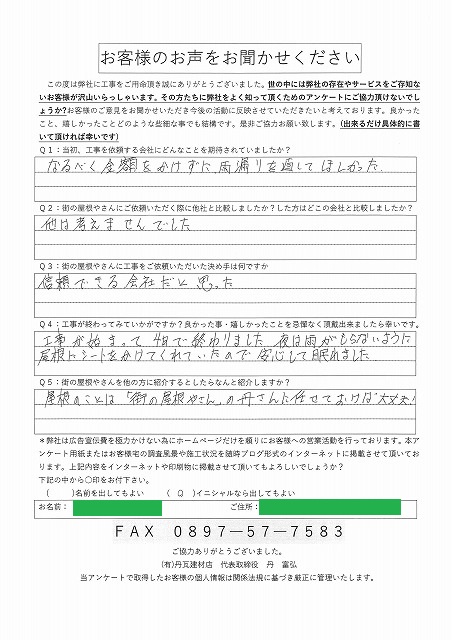 お客様のお声をお聞かせください
この度は弊社に工事をご用命頂き誠にありがとうございました。世の中には弊社の存在やサービスをご存知な
いお客様が沢山いらっしゃいます。その方たちに弊社をよく知って頂くためのアンケートにご協力頂けないでし
ょうか?お客様のご意見をお聞かせいただき今後の活動に反映させていただきたいと考えております。良かった
こと、嬉しかったことどのような些細な事でも結構です。是非ご協力お願い致します。(出来るだけ具体的に書
いて頂ければ幸いです)
Q1:当初、工事を依頼する会社にどんなことを期待されていましたか?
なるべく金額をかけずに、雨漏りを直してほしかった。
Q2:街の屋根やさんにご依頼いただく際に他社と比較しましたか?した方はどこの会社と比較しましたか?
他は考えませんでした
Q3:街の屋根やさんに工事をご依頼いただいた決め手は何ですか
信頼できる会社だと思った
Q4:工事が終わってみていかがですか?良かった事・嬉しかったことを忌憚なく頂戴出来ましたら幸いです。
工事が始まって4日で終わりました 夜は雨がもらないように
屋根にシートをかけてくれていたので安心して眠れました
Q5:街の屋根やさんを他の方に紹介するとしたらなんと紹介しますか?
屋根のことは「街の屋根やさん」の丹さんに任せておけば大丈夫!
*弊社は広告宣伝費を極力かけない為にホームページだけを頼りにお客様への営業活動を行っております。本ア
ンケート用紙またはお客様宅の調査風景や施工状況を随時ブログ形式のインターネットに掲載させて頂いてお
ります。上記内容をインターネットや印刷物に掲載させて頂いてもよろしいでしょうか?
下記の中から〇印をお付下さい。
( )名前を出してもよい ( 〇 )イニシャルなら出してもよい
お名前: ご住所:
FAX 0897-57-7583
ご協力ありがとうございました。
(有)丹瓦建材店 代表取締役 丹 富弘
当アンケートで取得したお客様の個人情報は関係法規に基づき厳正に管理いたします。